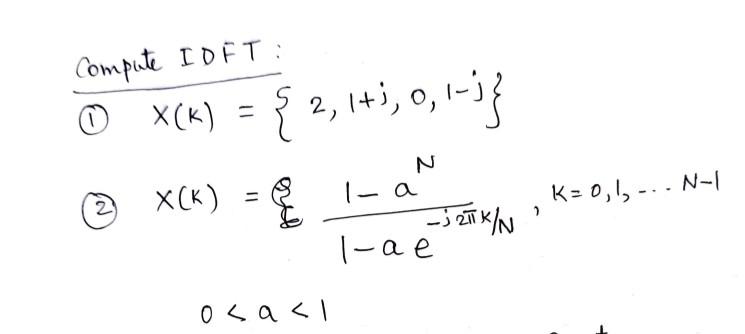 Compute IDFT :
① X(K) = { 2, 1+j, 0, 1-j }
② X(K) = \frac{1-a^N}{1-a e^{-j2πK/N}} , K = 0, 1, --- N-1
0 < a < 1